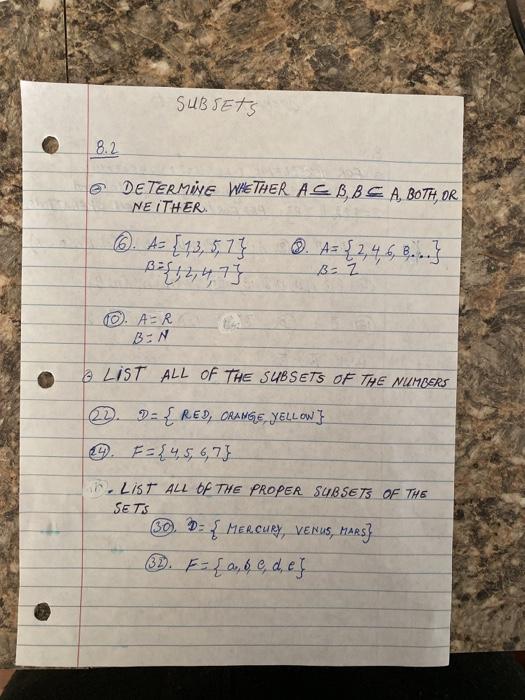 SUBSETS
8.2
DETERMINE WHETHER A ⊆ B, B ⊆ A, BOTH, OR
NEITHER.
6. A= {1,3,5,7} 8. A= {2,4,6,8,...}
B={1,2,4,7} B= Z
10. A=R
B=N
LIST ALL OF THE SUBSETS OF THE NUMBERS
22. D= { RED, ORANGE, YELLOW}
24. F={4,5,6,7}
LIST ALL OF THE PROPER SUBSETS OF THE
SETS
30. D= { MERCURY, VENUS, MARS}
32. F= {a,b,c,d,e}